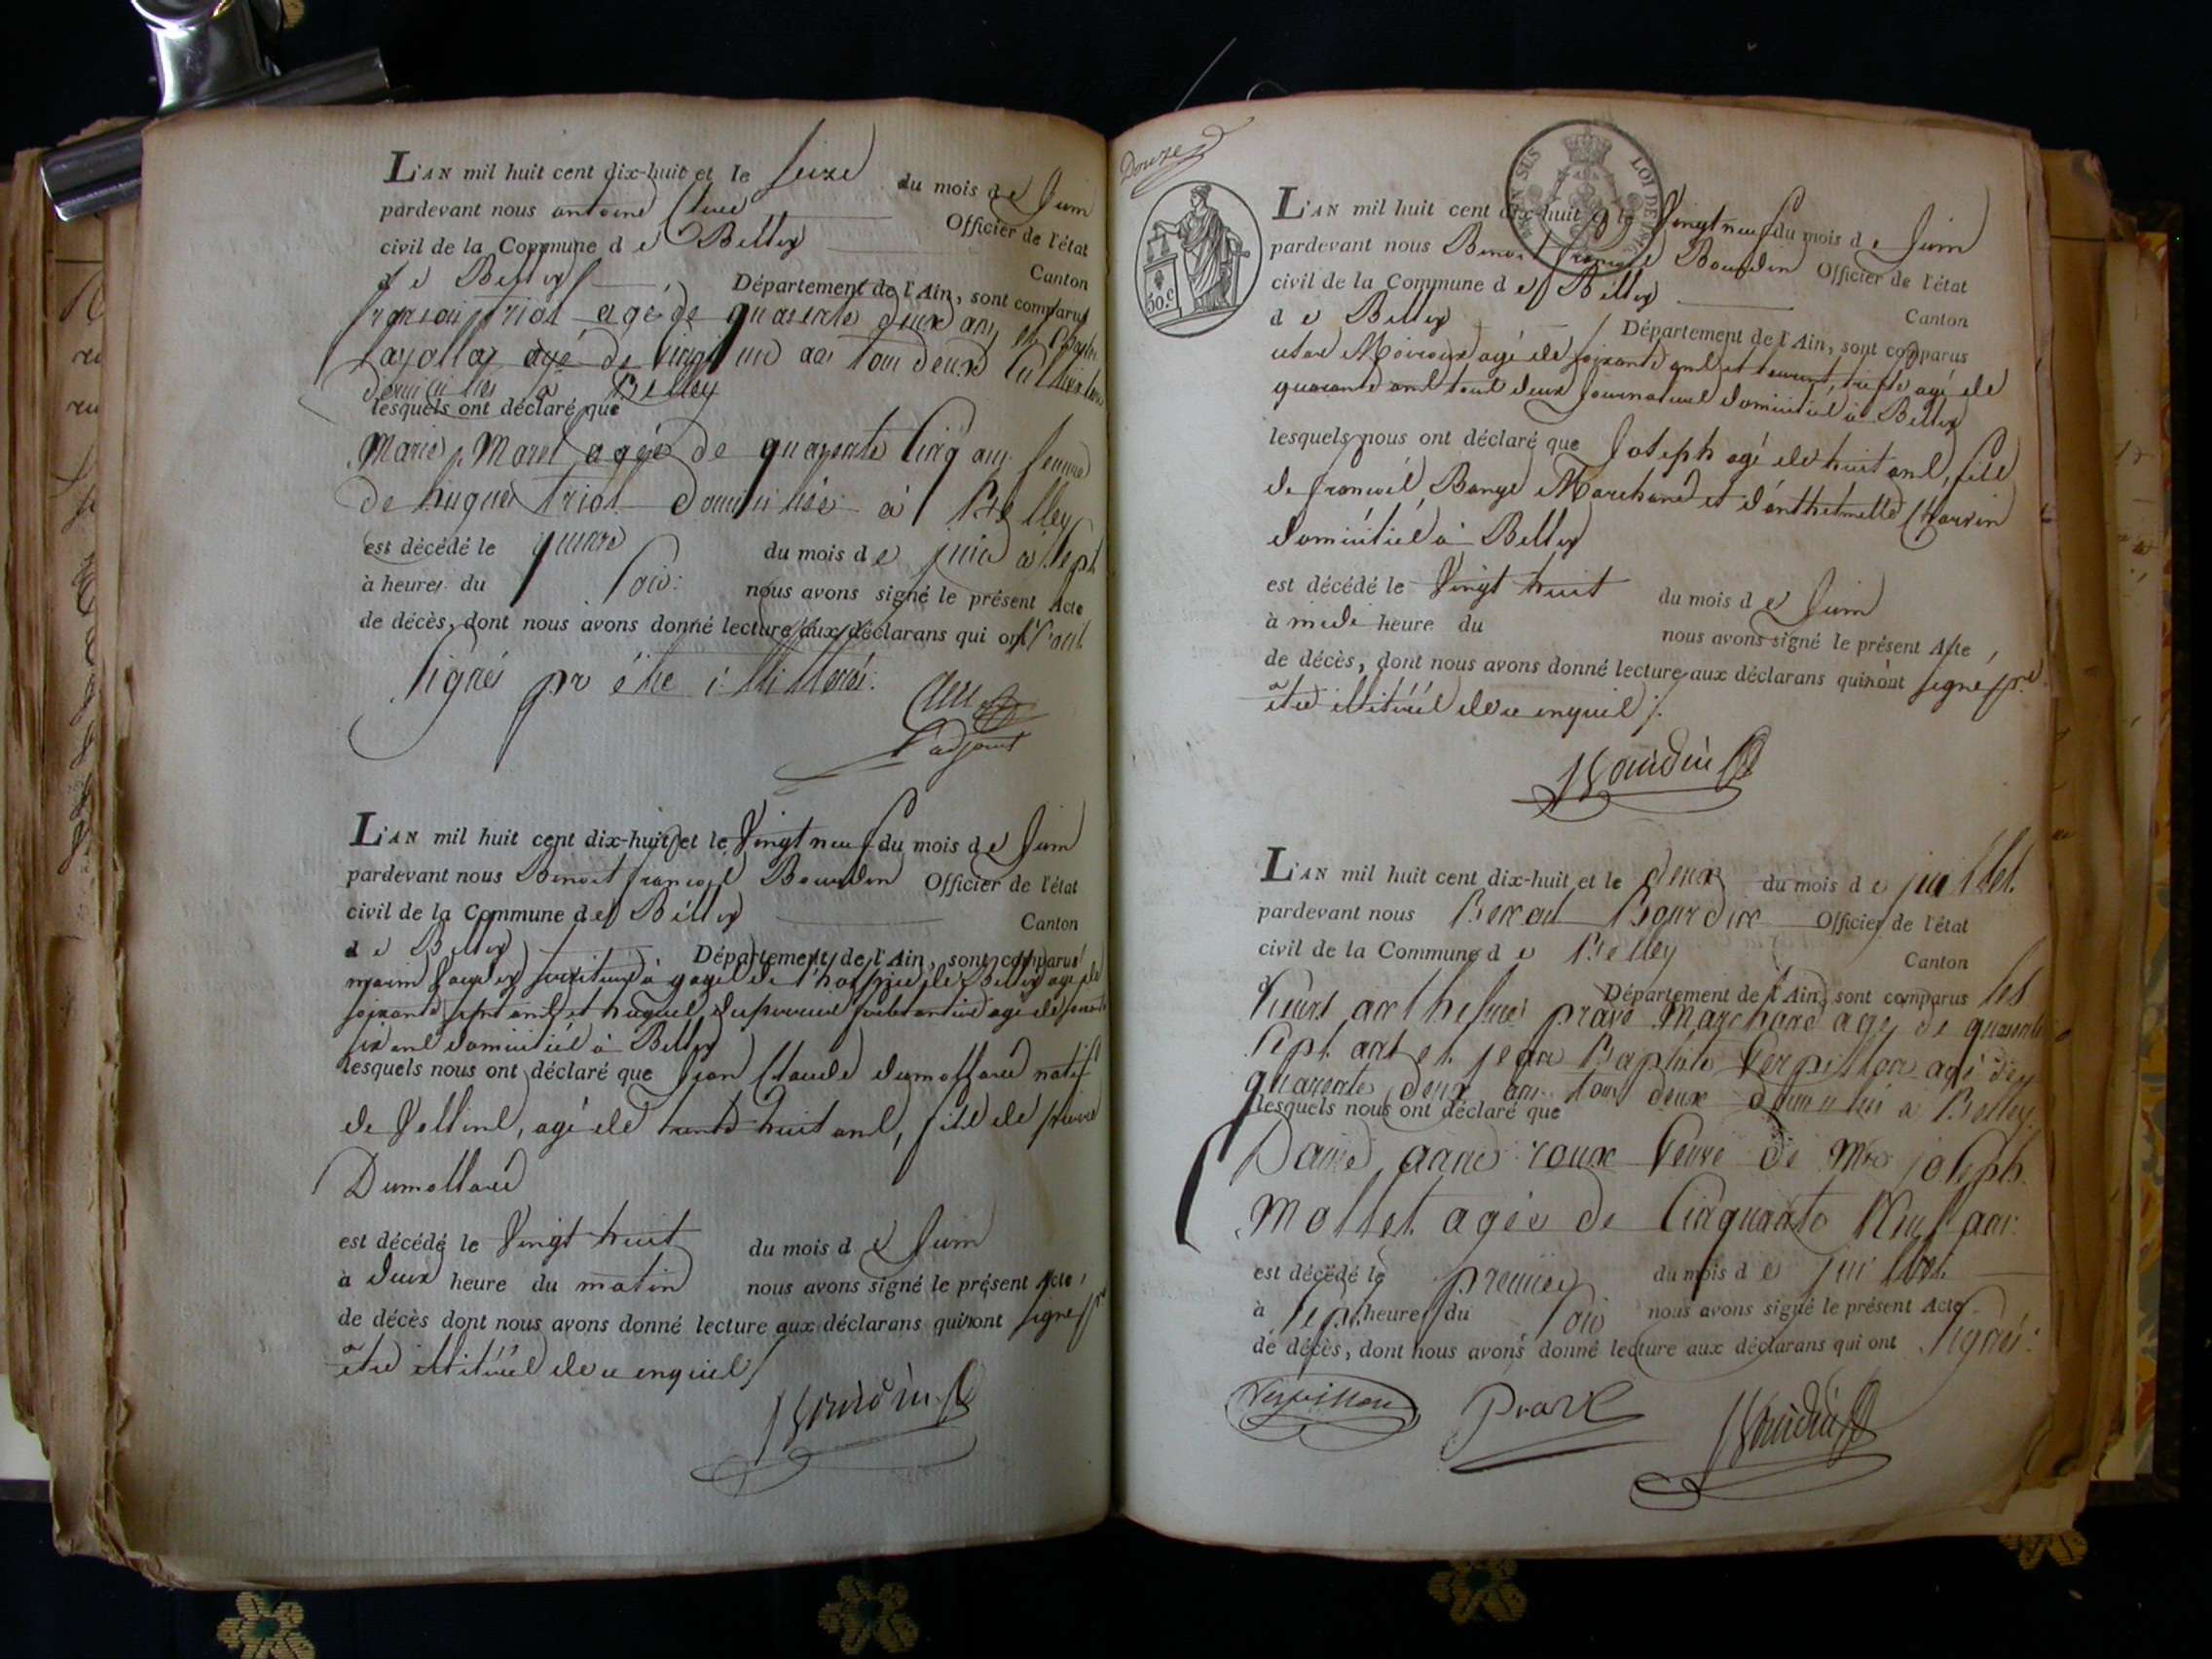 L'AN mil huit cent dix-huit et le seize du mois de Juin
pardevant nous antoine Clerc Officier de l'état
civil de la Commune de Belley Canton
de Belley Département de l'Ain, sont comparus
françois triol agé de quarante deux ans et
agé de vingt un ans tous deux Cultivateurs
domiciliés à Belley
lesquels ont déclaré que
Marie Morel agée de quarante Cinq ans femme
de hugues triol domiciliée à Belley
est décédé le quinze du mois de juin a sept
à heures du soir nous avons signé le présent Acte
de décès, dont nous avons donné lecture aux déclarans qui ont
signés pr être illitterés.
Clerc
l'adjoint
L'AN mil huit cent dix-huit et le Vingt neuf du mois de Juin
pardevant nous Benoit françois Bourdin Officier de l'état
civil de la Commune de Belley Canton
de Belley Département de l'Ain, sont comparus
à gages de l'hospice de Belley agé de
soixante sept ans et hugues agé de
six ans domiciliés à Belley
lesquels nous ont déclaré que Jean Claude Dumollard natif
de, agé de trente huit ans, fils de
Dumollard
est décédé le Vingt huit du mois de Juin
à deux heure du matin nous avons signé le présent Acte,
de décès dont nous avons donné lecture aux déclarans qui n'ont signé pr
être illitérés de ce enquis
Bourdin
Douze
50.c
LOI DE
L'AN mil huit cent dix-huit & le Vingt neuf du mois de Juin
pardevant nous Benoit françois Bourdin Officier de l'état
civil de la Commune de Belley Canton
de Belley Département de l'Ain, sont comparus
agé de soixante ans et agé de
quarante ans tous deux journaliers domiciliés à Belley
lesquels nous ont déclaré que Joseph agé de huit ans, fils
de françois Bonge Marchand et d'anthelmette Charvin
domiciliés à Belley
est décédé le Vingt huit du mois de Juin
à midi heure du nous avons signé le présent Acte,
de décès, dont nous avons donné lecture aux déclarans qui n'ont signé pr
être illitérés de ce enquis /.
Bourdin
L'AN mil huit cent dix-huit et le deux du mois de juillet
pardevant nous Benoit Bourdin Officier de l'état
civil de la Commune de Belley Canton
d Département de l'Ain, sont comparus les
sieurs anthelme prave Marchand agé de quarante
sept ans et jean Baptiste Verpillon agé de
quarante deux ans tous deux domiciliés à Belley
lesquels nous ont déclaré que
Dame anne roux Veuve de Mre joseph
Mollet agée de Cinquante Neuf ans
est décédé le premier du mois de juillet
à sept heures du soir nous avons signé le présent Acte
de décès, dont nous avons donné lecture aux déclarans qui ont signés.
Verpillon Bourdin